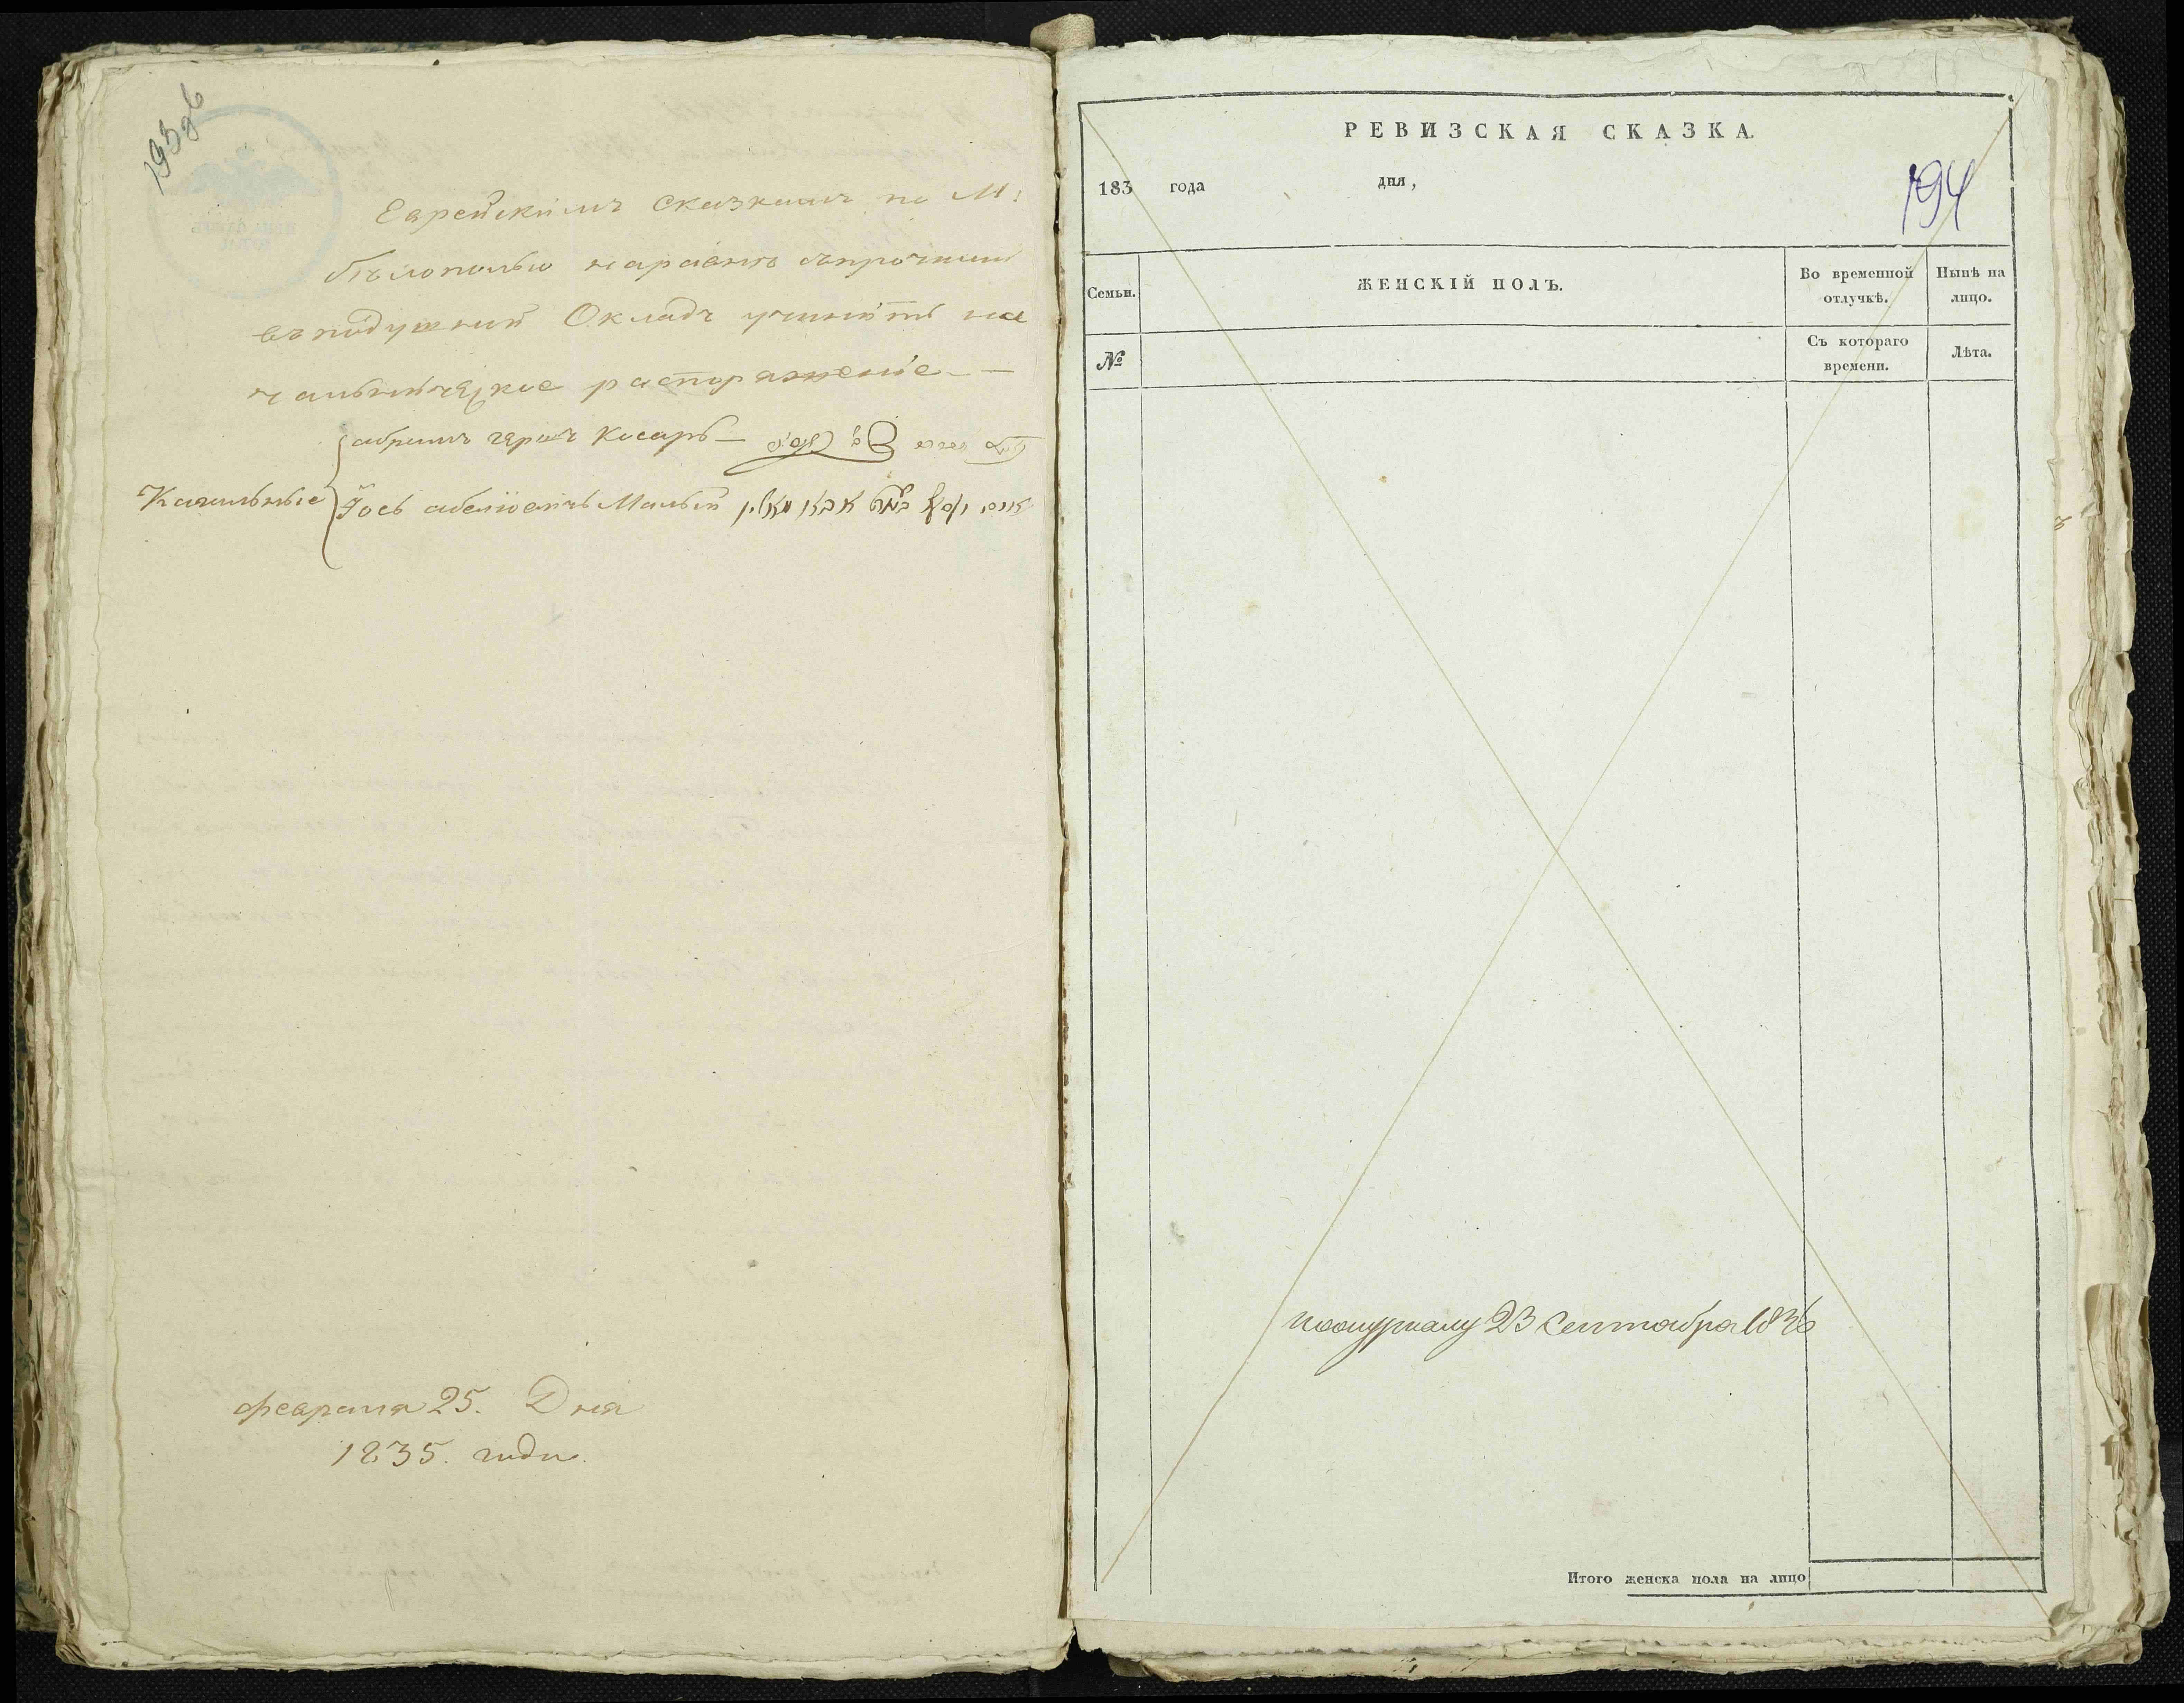 193 об
Еврейскимъ сказкамъ по М:
Бѣлополью наравнѣ съпрочими
въ подушный Окладъ учинить на
чальническое распоряжение —
Абрамъ Герш Косарь —
Кагальные
Иось Абелiовичъ Малый
февраля 25. Дня
1835. года.
РЕВИЗСКАЯ СКАЗКА.
183 года дня,
194
Семьи.
ЖЕНСКІЙ ПОЛЪ.
Во временной отлучкѣ.
Нынѣ на лицо.
№
Съ котораго времени.
Лѣта.
по журналу 23 Сентября 1836
Итого женска пола на лицо